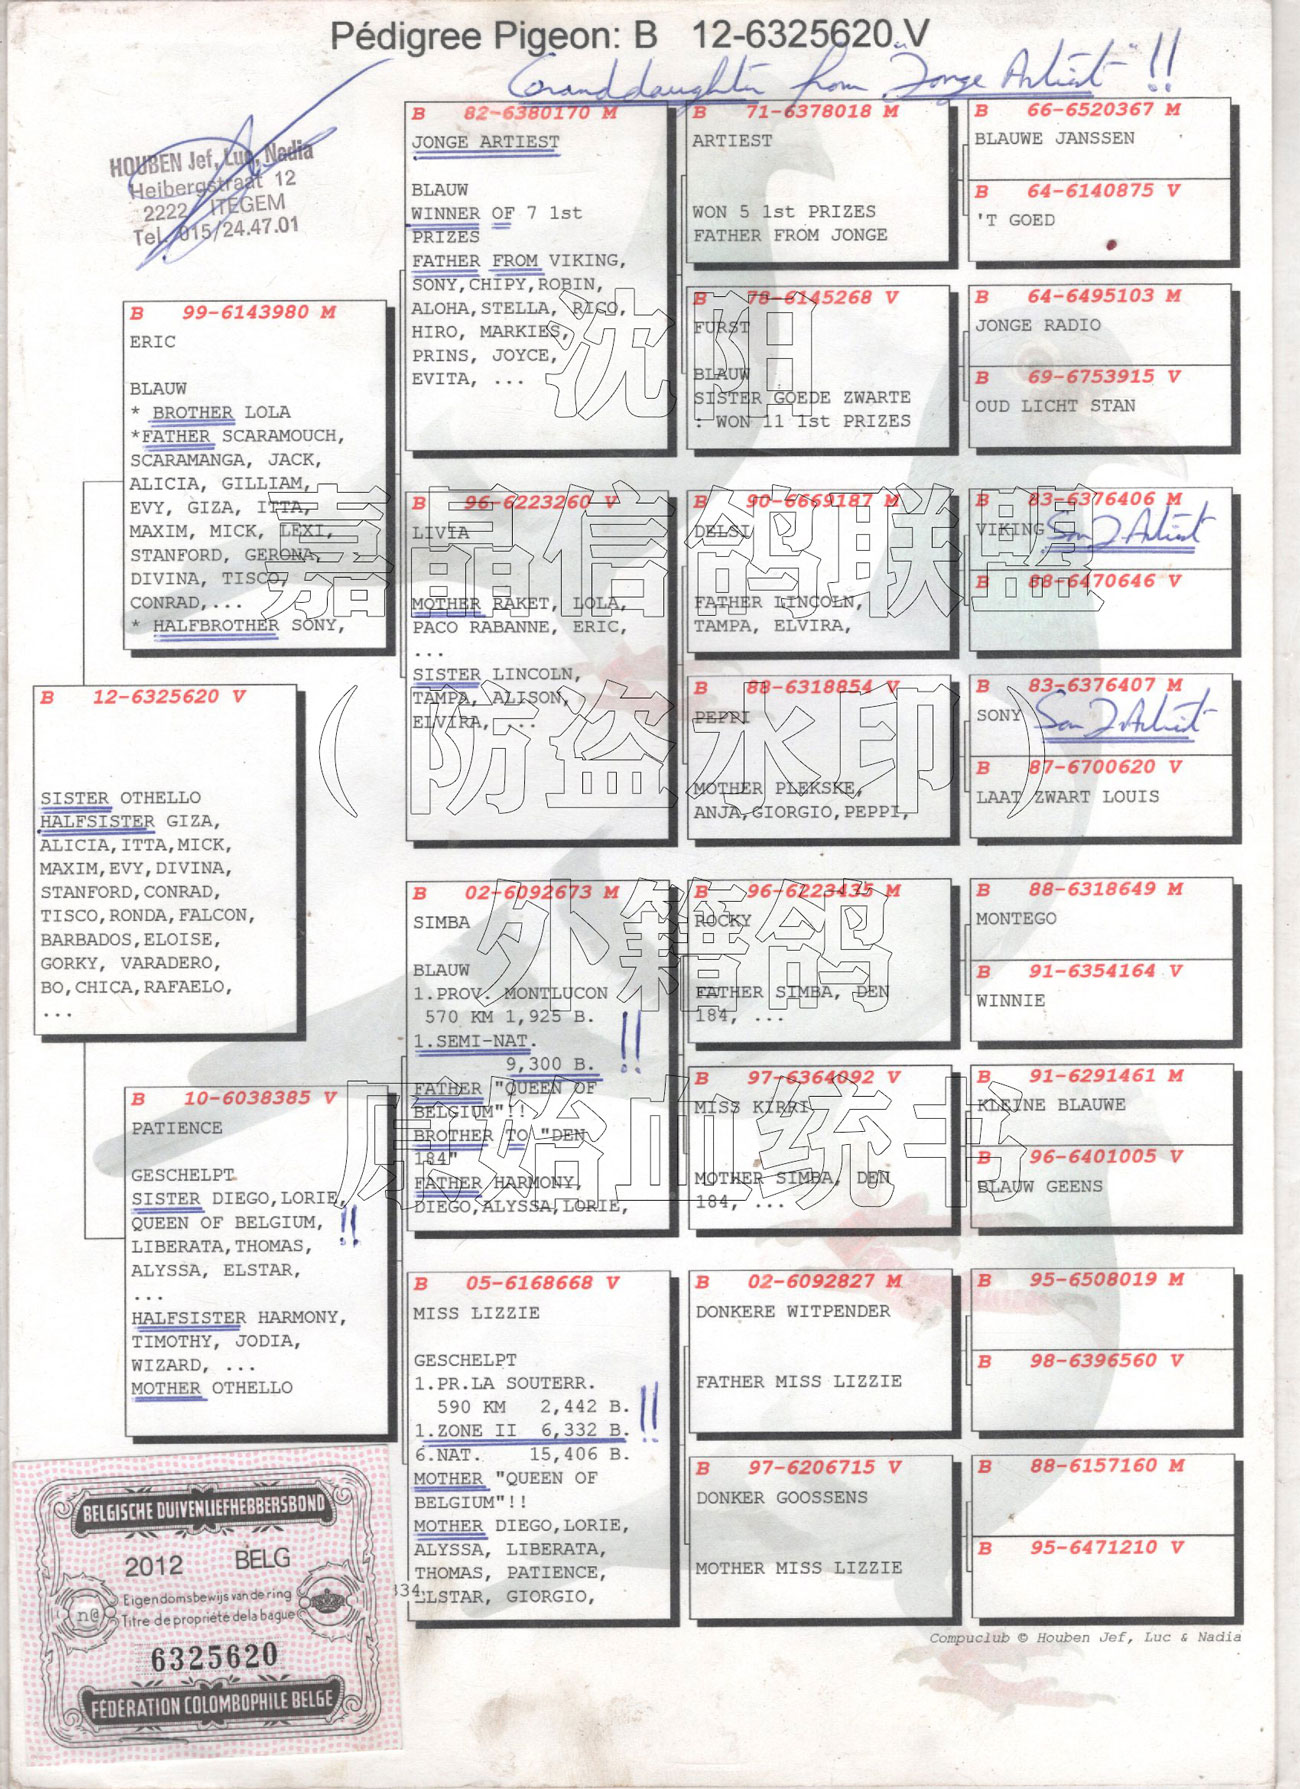 Pédigree Pigeon: B 12-6325620.V
Granddaughter from "Jonge Artiest" !!
HOUBEN Jef, Luc, Nadia
Heibergstraat 12
2222 ITEGEM
Tel. 015/24.47.01
B 12-6325620 V
SISTER OTHELLO
HALFSISTER GIZA,
ALICIA,ITTA,MICK,
MAXIM,EVY,DIVINA,
STANFORD,CONRAD,
TISCO,RONDA,FALCON,
BARBADOS,ELOISE,
GORKY, VARADERO,
BO,CHICA,RAFAELO,
...
B 99-6143980 M
ERIC
BLAUW
* BROTHER LOLA
*FATHER SCARAMOUCH,
SCARAMANGA, JACK,
ALICIA, GILLIAM,
EVY, GIZA, ITTA,
MAXIM, MICK, LEXI,
STANFORD, GERONA,
DIVINA, TISCO,
CONRAD,...
* HALFBROTHER SONY,
B 10-6038385 V
PATIENCE
GESCHELPT
SISTER DIEGO,LORIE,
QUEEN OF BELGIUM, !!
LIBERATA,THOMAS,
ALYSSA, ELSTAR,
...
HALFSISTER HARMONY,
TIMOTHY, JODIA,
WIZARD, ...
MOTHER OTHELLO
B 82-6380170 M
JONGE ARTIEST
BLAUW
WINNER OF 7 1st
PRIZES
FATHER FROM VIKING,
SONY,CHIPY,ROBIN,
ALOHA,STELLA, RICO,
HIRO, MARKIES,
PRINS, JOYCE,
EVITA, ...
B 96-6223260 V
LIVIA
MOTHER RAKET, LOLA,
PACO RABANNE, ERIC,
...
SISTER LINCOLN,
TAMPA, ALISON,
ELVIRA, ...
B 02-6092673 M
SIMBA
BLAUW
1.PROV. MONTLUCON
570 KM 1,925 B.
1.SEMI-NAT. !!
9,300 B.
FATHER "QUEEN OF
BELGIUM"!!
BROTHER TO "DEN
184"
FATHER HARMONY,
DIEGO,ALYSSA,LORIE,
B 05-6168668 V
MISS LIZZIE
GESCHELPT
1.PR.LA SOUTERR.
590 KM 2,442 B.
1.ZONE II 6,332 B. !!
6.NAT. 15,406 B.
MOTHER "QUEEN OF
BELGIUM"!!
MOTHER DIEGO,LORIE,
ALYSSA, LIBERATA,
THOMAS, PATIENCE,
ELSTAR, GIORGIO,
B 71-6378018 M
ARTIEST
WON 5 1st PRIZES
FATHER FROM JONGE
B 78-6145268 V
FURST
BLAUW
SISTER GOEDE ZWARTE
: WON 11 1st PRIZES
B 90-6669187 M
DELSI
FATHER LINCOLN,
TAMPA, ELVIRA,
B 88-6318854 V
PEPRI
MOTHER PLEKSKE,
ANJA,GIORGIO,PEPPI,
B 96-6223435 M
ROCKY
FATHER SIMBA, DEN
184, ...
B 97-6364092 V
MISS KIRRI
MOTHER SIMBA, DEN
184, ...
B 02-6092827 M
DONKERE WITPENDER
FATHER MISS LIZZIE
B 97-6206715 V
DONKER GOOSSENS
MOTHER MISS LIZZIE
B 66-6520367 M
BLAUWE JANSSEN
B 64-6140875 V
'T GOED
B 64-6495103 M
JONGE RADIO
B 69-6753915 V
OUD LICHT STAN
B 83-6376406 M
VIKING Son J. Artiest
B 88-6470646 V
B 83-6376407 M
SONY Son J. Artiest
B 87-6700620 V
LAAT ZWART LOUIS
B 88-6318649 M
MONTEGO
B 91-6354164 V
WINNIE
B 91-6291461 M
KLEINE BLAUWE
B 96-6401005 V
BLAUW GEENS
B 95-6508019 M
B 98-6396560 V
B 88-6157160 M
B 95-6471210 V
Compuclub © Houben Jef, Luc & Nadia
沈阳
嘉晶信鸽联盟
(防盗水印)
外籍鸽
原始血统书
BELGISCHE DUIVENLIEFHEBBERSBOND
2012 BELG
Eigendomsbewijs van de ring
Titre de propriété de la bague
n@
6325620
FÉDÉRATION COLOMBOPHILE BELGE
334